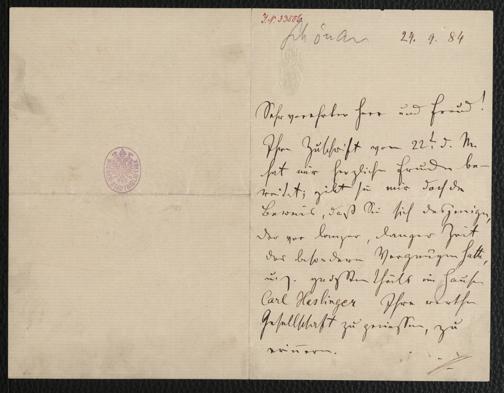 29. 9. 84
Sehr verehrter Herr und Freund!
Ihre Zuschrift vom 22t. d. M.
hat mir herzliche Freude be-
reitet; gibt sie mir doch den
Beweis, daß Sie sich desjenigen,
der vor langer, langer Zeit
das besondere Vergnügen hatte,
u. z. größten theils im Hause
Carl Haslinger Ihre werthe
Gesellschaft zu geniessen, zu
erinnern.